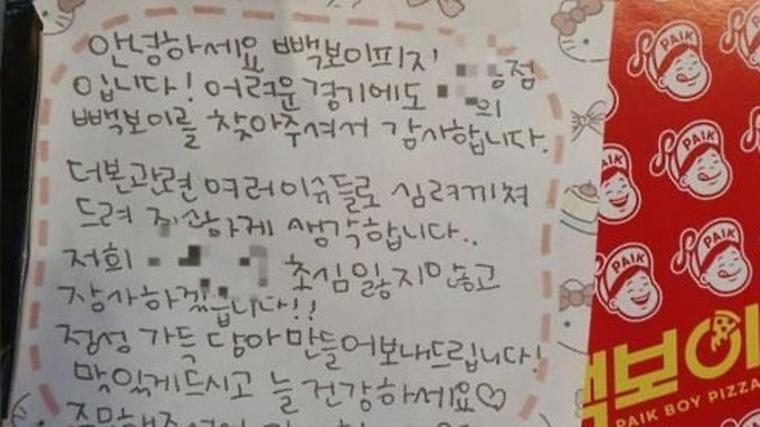 안녕하세요 빽보이피자 점
입니다! 어려운 경기에도 의
빽보이를 찾아주셔서 감사합니다.
더본관련 여러이슈들로 심려끼쳐
드려 죄송하게 생각합니다..
저희 초심잃지않고
장사하겠습니다!!
정성 가득 담아 만들어보내드립니다!
맛있게드시고 늘 건강하세요♡
PAIK
PAIK
PAIK
PAIK
PAIK
백보이
PAIK BOY PIZZA